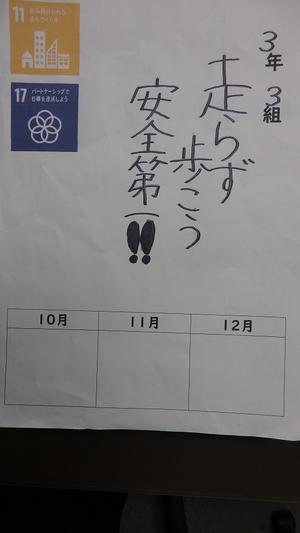 11 住み続けられる
まちづくりを
17 パートナーシップで
目標を達成しよう
3年 3組
走らず
歩こう
安全第一!!
10月 11月 12月